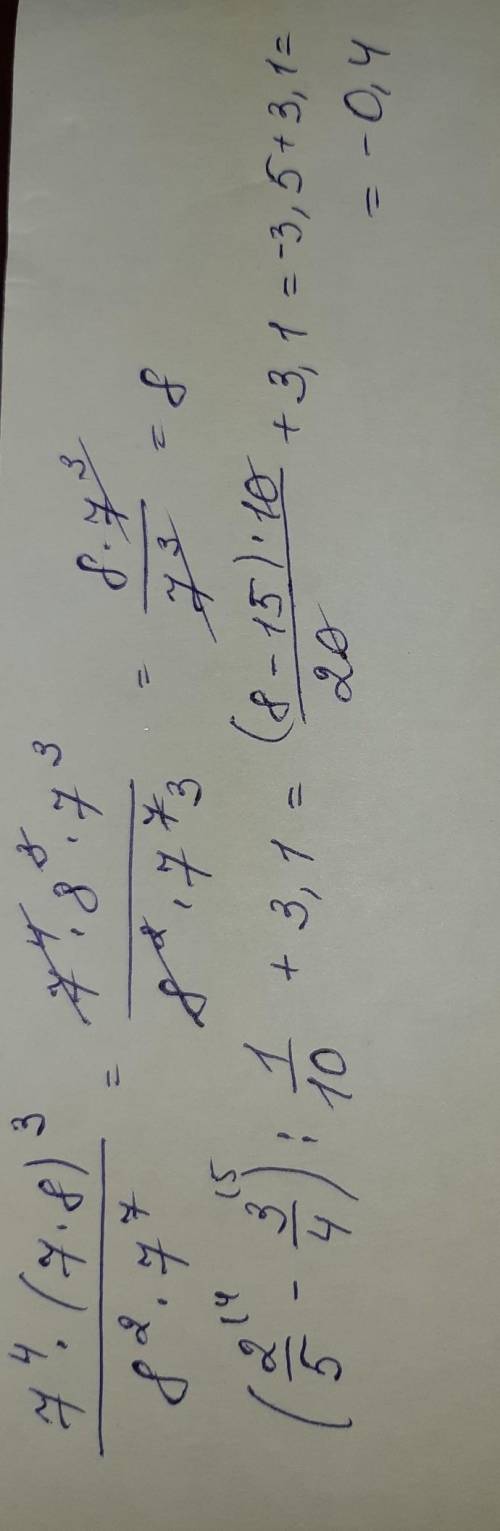 7⁴·(7·8)³ / 8²·7⁷ = 7⁴·8³·7³ / 8²·7⁷ 3 = 8·7³ / 7³ = 8
(2/5 ⁽⁴ - 3/4 ⁽⁵) : 1/10 + 3,1 = (8-15)·10 / 20 + 3,1 = -3,5 + 3,1 =
= -0,4